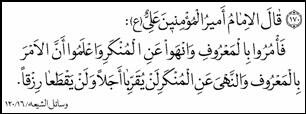 (١٧٠) قَالَ الْاِمٰامُ أَمِيرُ الْمُؤْمِنِينَ عَلِيٌّ (ع):
فَأْمُرُوا بِالْمَعْرُوفِ وَانْهَوْا عَنِ الْمُنْكَرِ وَاعْلَمُوا أَنَّ الْأَمْرَ
بِالْمَعْرُوفِ وَالنَّهْىَ عَنِ الْمُنْكَرِ لَنْ يَقْرَبٰا أَجَلاً وَلَنْ يَقْطَعٰا رِزْقاً.
وسائل الشيعه/١٦/١٢٠